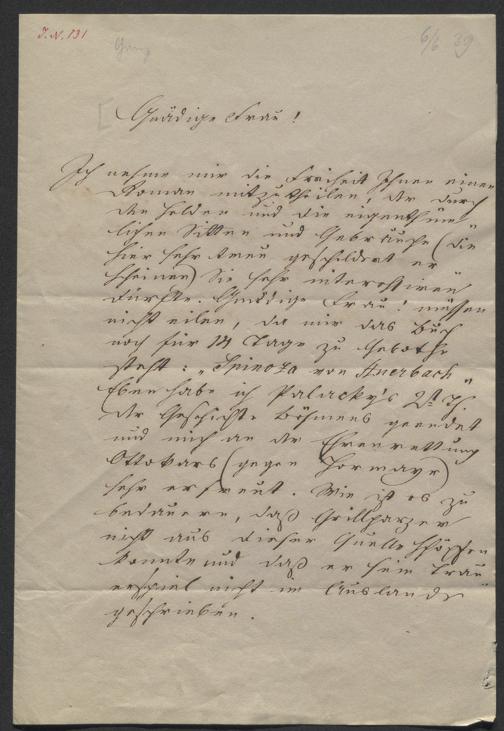 J. N. 131
6/6 39
Gnädige Frau!
Ich nehme mir die Freiheit Ihnen einen
Roman mitzutheilen, der durch
den Helden und die eigenthüm-
lichen Sitten und Gebräuche (die
hier sehr treu geschildert er
scheinen) Sie sehr interessiren
dürfte. Gnädige Frau! müssen
nicht eilen, da mir das Buch
noch für 14 Tage zu Gebothe
steht: „Spinoza von Auerbach"
Eben habe ich Palacky's 2t. Th.
der Geschichte Böhmens geendet
und mich an der Ehrenrettung
Ottokars (gegen Hormayr)
sehr erfreut. Wie ist es zu
bedauern, daß Grillparzer
nicht aus dieser Quelle schöpfen
konnte und daß er sein Trau
erspiel nicht im Auslande
geschrieben.